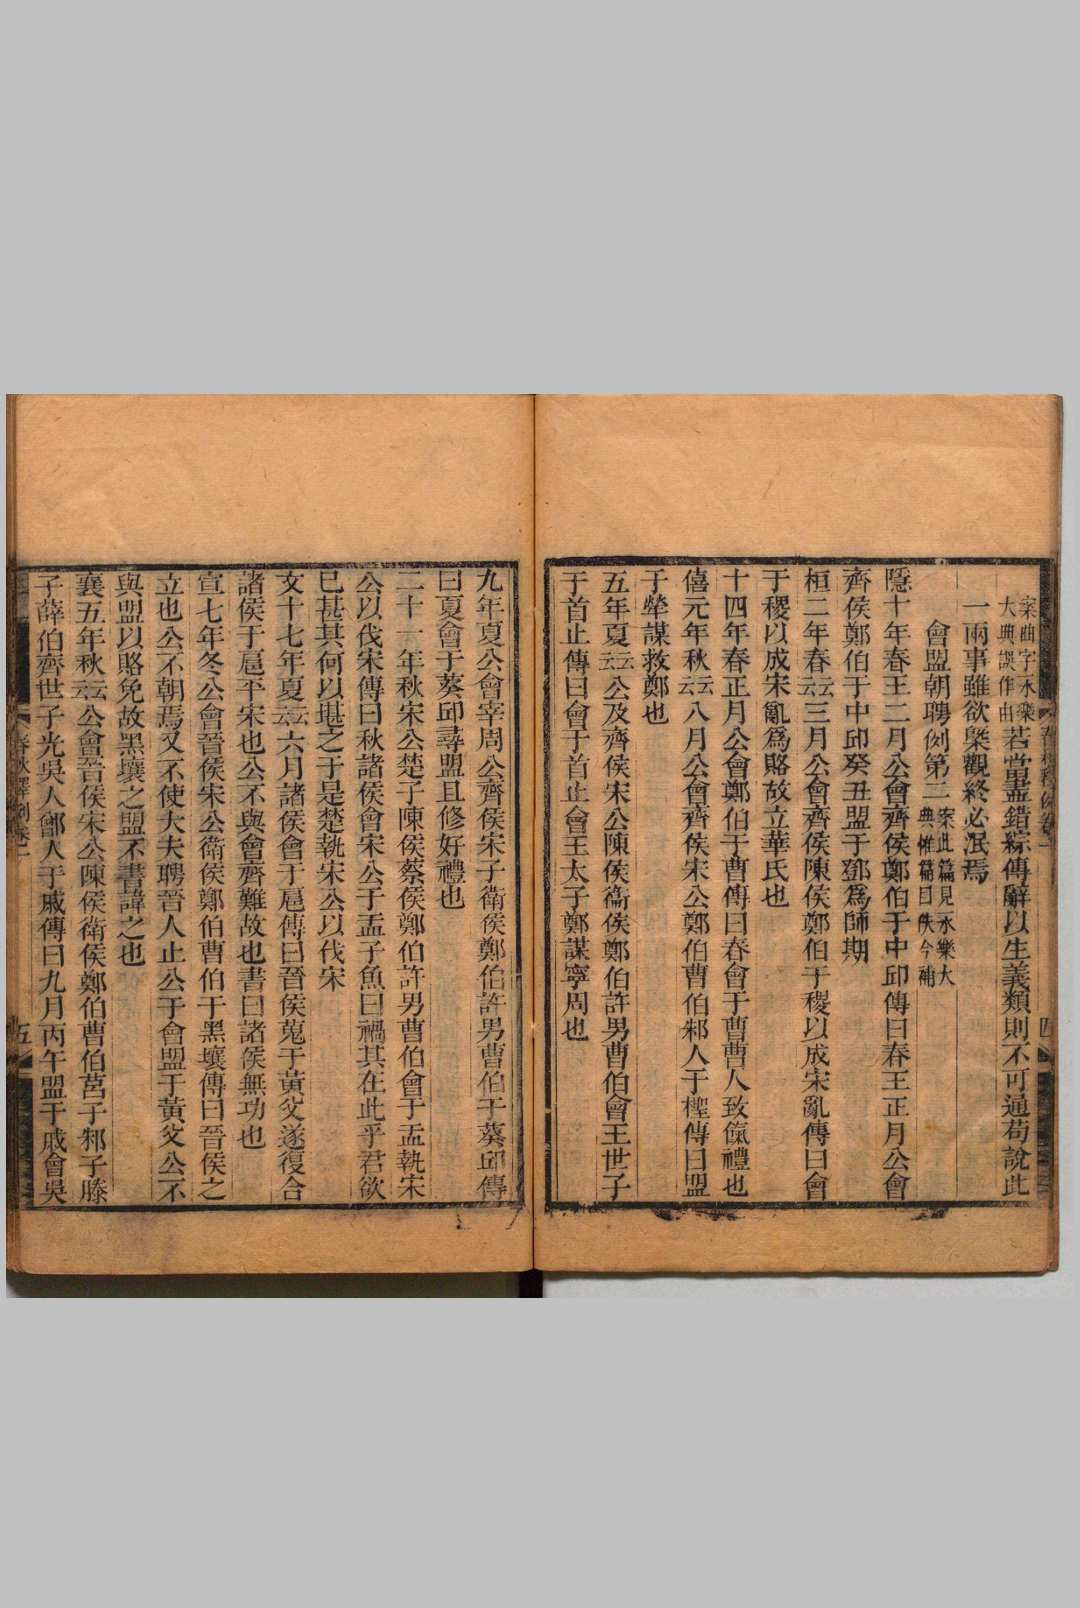 案曲字永樂
大典誤作由若當盡錯綜傳辭以生義類則不可通苟說此
一兩事雖欲槩觀終必泯焉
會盟朝聘例第二案此篇見永樂大
典惟篇目佚今補
隱十年春王二月公會齊侯鄭伯于中邱傳曰春王正月公會
齊侯鄭伯于中邱癸丑盟于鄧爲師期
桓二年春云云三月公會齊侯陳侯鄭伯于稷以成宋亂傳曰會
于稷以成宋亂爲賂故立華氏也
十四年春正月公會鄭伯于曹傳曰春會于曹曹人致餼禮也
僖元年秋云云八月公會齊侯宋公鄭伯曹伯邾人于檉傳曰盟
于犖謀救鄭也
五年夏云云公及齊侯宋公陳侯衞侯鄭伯許男曹伯會王世子
于首止傳曰會于首止會王太子鄭謀寧周也
九年夏公會宰周公齊侯宋子衛侯鄭伯許男曹伯于葵邱傳
曰夏會于葵邱尋盟且修好禮也
二十一年秋宋公楚子陳侯蔡侯鄭伯許男曹伯會于盂執宋
公以伐宋傳曰秋諸侯會宋公于盂子魚曰禍其在此乎君欲
已甚其何以堪之于是楚執宋公以伐宋
文十七年夏云云六月諸侯會于扈傳曰晉侯蒐于黃父遂復合
諸侯于扈平宋也公不與會齊難故也書曰諸侯無功也
宣七年冬公會晉侯宋公衛侯鄭伯曹伯于黑壤傳曰晉侯之
立也公不朝焉又不使大夫聘晉人止公于會盟于黃父公不
與盟以賂免故黑壤之盟不書諱之也
襄五年秋云云公會晉侯宋公陳侯衛侯鄭伯曹伯莒子邾子滕
子薛伯齊世子光吳人鄫人于戚傳曰九月丙午盟于戚會吳
春秋釋例卷一
五